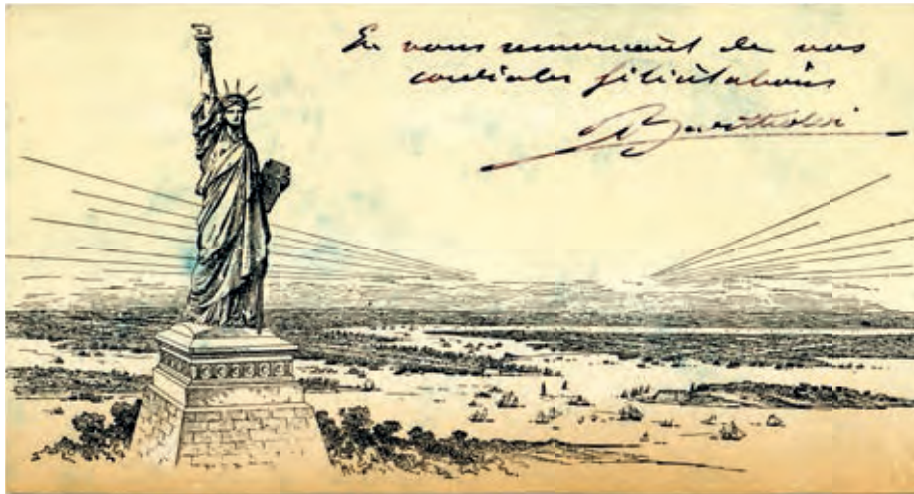 En vous remerciant de vos
cordiales félicitations
Bartholdi